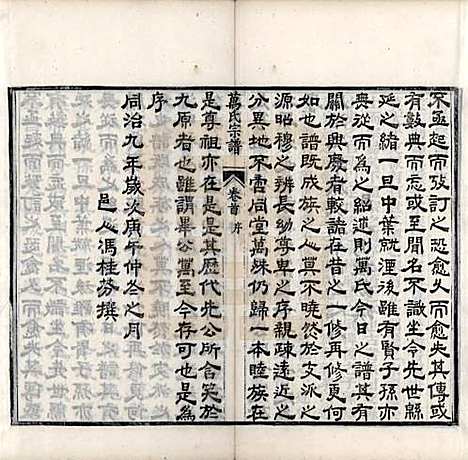 不亟起而攷訂之恐愈久而愈失其傳或
有數典而忘或至聞名不識坐令先世緜
延之緒一旦中葉就湮後雖有賢子孫亦
無從而為之紹述則萬氏今日之譜其有
關於興廢者較諸在昔之一修再修更何
如也譜既成族之人莫不曉然於支派之
源昭穆之辨長幼尊卑之序親疎遠近之
分異地不啻同堂萬殊仍歸一本睦族在
萬氏宗譜
卷首 序
是尊祖亦在是是其歷代先公所含笑於
九原者也雖謂畢公萬至今存可也是為
序
同治九年歲次庚午仲冬之月
邑人馮桂芬撰